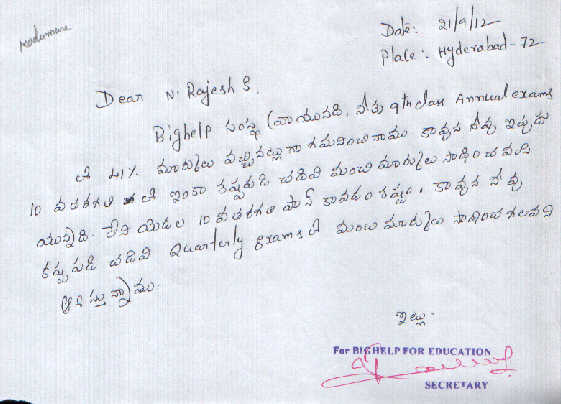 Date: 21/9/12
Place: Hyderabad-72
Dear N. Rajesh S.
Bighelp సంస్థ వ్రాయునది, నీకు 9th class Annual exams
లో 41% మార్కులు వచ్చినట్లుగా గమనించినాము కావున నీవు ఇప్పుడు
10 వ తరగతి లో ఇంకా కష్టపడి చదివి మంచి మార్కులు సాధించవలసి
యున్నది. లేని యెడల 10 వ తరగతి పాస్ కావడం కష్టం, కావున నీవు
కష్టపడి చదివి Quarterly exams లో మంచి మార్కులు సాధించగలవని
ఆశిస్తున్నాము.
ఇట్లు.
For BIGHELP FOR EDUCATION
SECRETARY